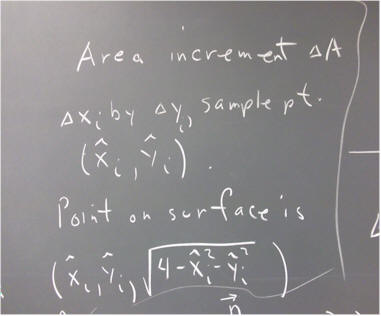 Area increment ΔA
Δxᵢ by Δyᵢ, sample pt.
(x̂ᵢ, ŷᵢ).
Point on surface is
(x̂ᵢ, ŷᵢ, √(4-x̂ᵢ²-ŷᵢ²))